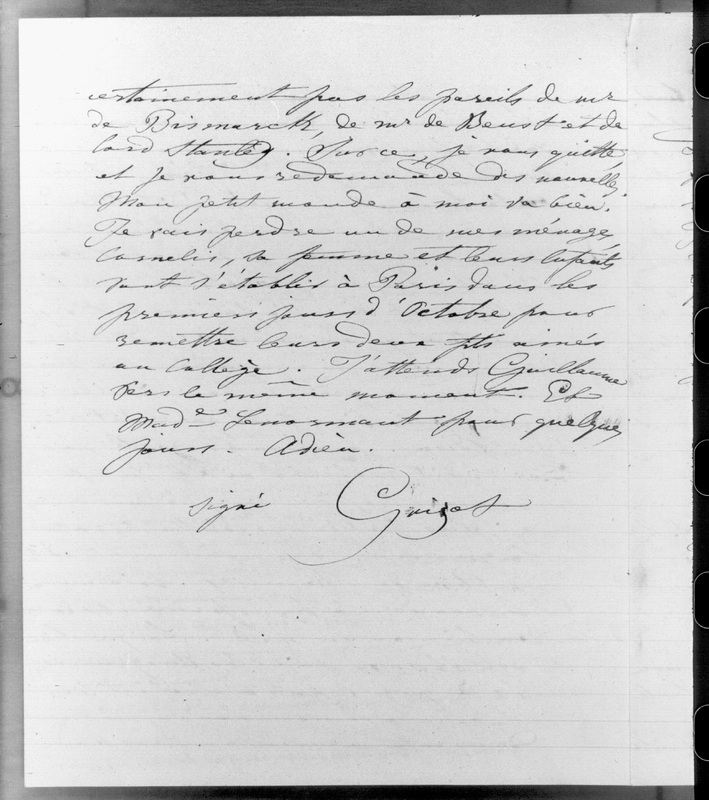 certainement pas les pareils de mr
de Bismarck, de mr de Beust et de
lord Stanley. Sur ce, je vous quitte
et je vous redemande des nouvelles.
Mon petit monde à moi va bien.
Je vais perdre un de mes ménages,
Cornelis, sa femme et leurs enfants
vont s'établir à Paris dans les
premiers jours d'Octobre pour
remettre leurs deux fils ainés
au Collège. J'attends Guillaume
vers le même moment. Et
Made Lenormant pour quelques
jours. Adieu.
signé Guizot